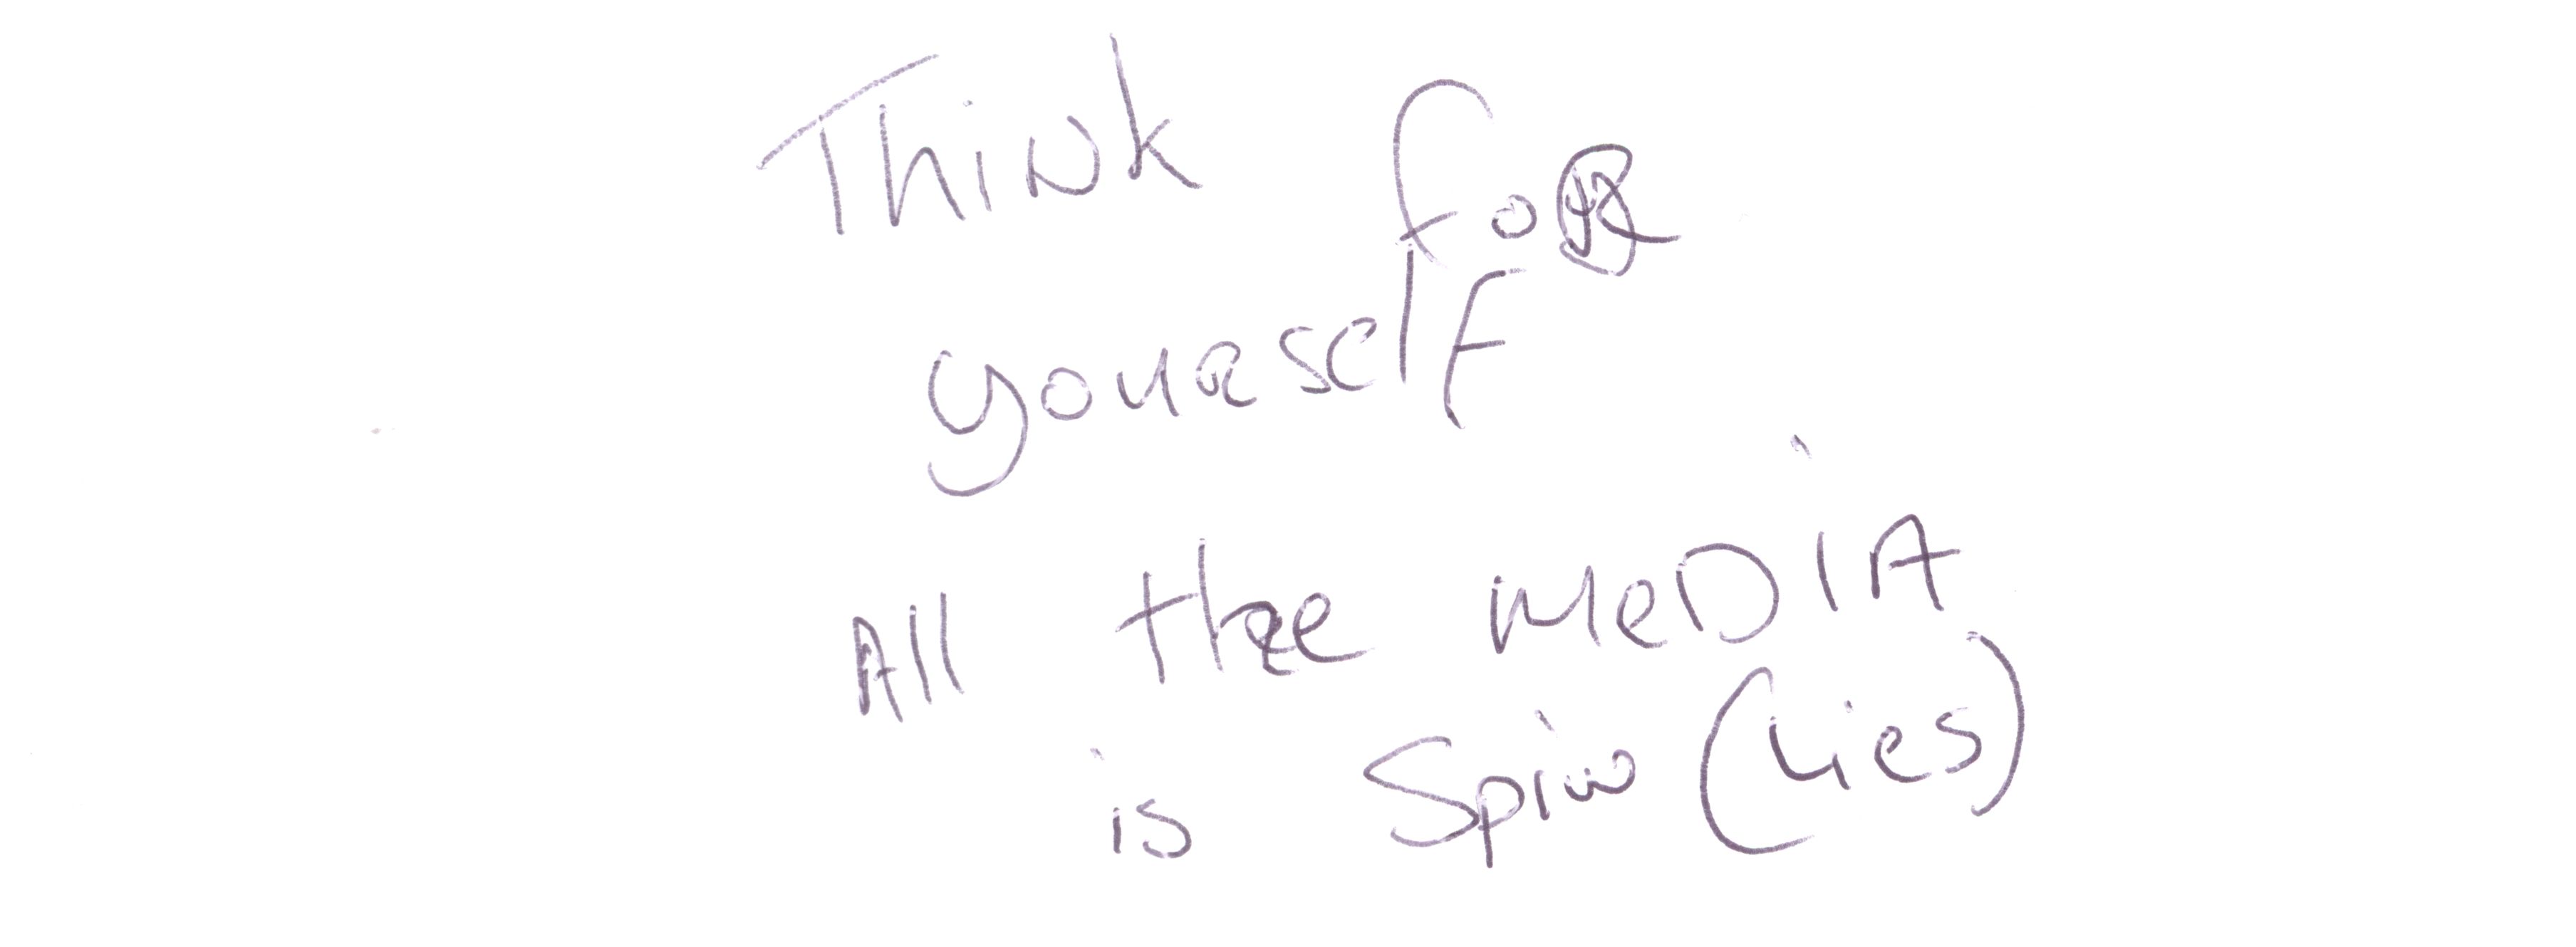 Think for
yourself
All the MeDIA
is Spin (Lies)